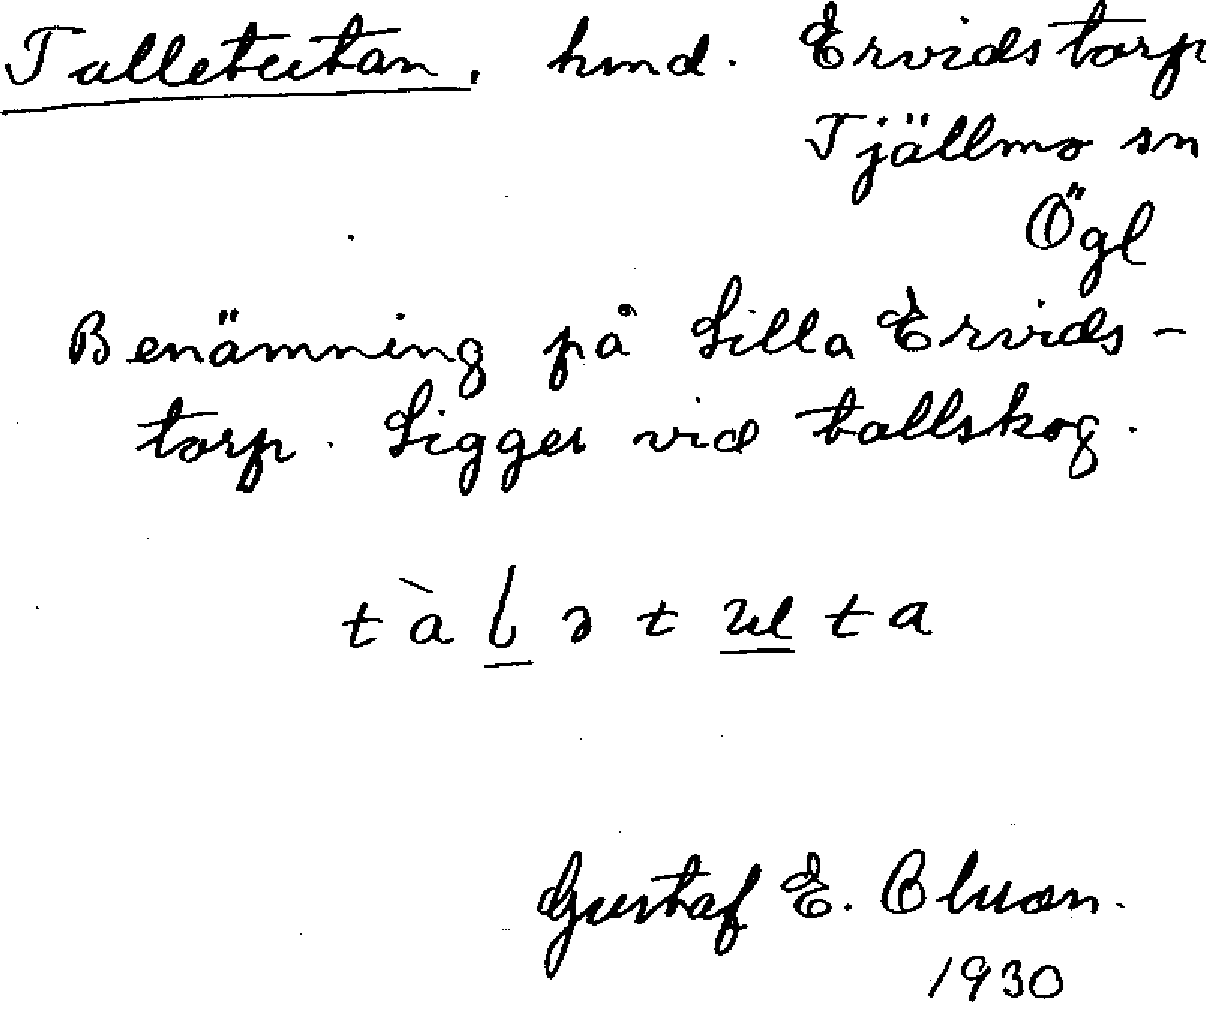 Talletutan, hmd. Ervidstorp
Tjällmo sn
Ögl
Benämning på Lilla Ervids-
torp. Ligger vid tallskog.
Gustaf E.
1930